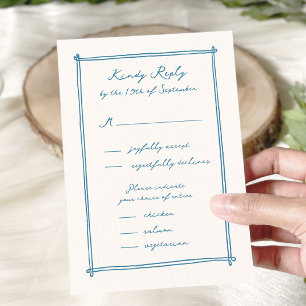 Kindy Reply
by the 19th of September
M
joyfully accept
respectfully declines
Please indicate
your choice of entrée
chicken
salmon
vegetarian